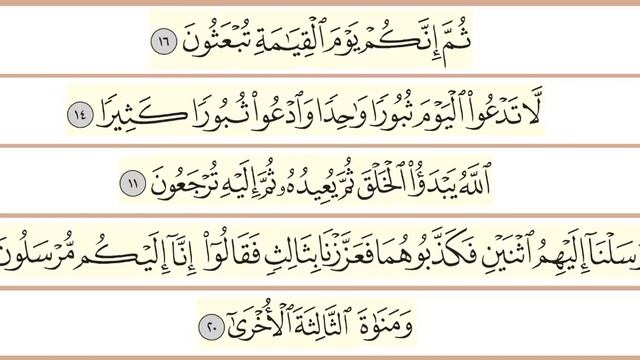 ثُمَّ إِنَّكُمْ يَوْمَ ٱلْقِيَٰمَةِ تُبْعَثُونَ ١٦
لَّا تَدْعُوا۟ ٱلْيَوْمَ ثُبُورًا وَٰحِدًا وَٱدْعُوا۟ ثُبُورًا كَثِيرًا ١٤
ٱللَّهُ يَبْدَؤُا۟ ٱلْخَلْقَ ثُمَّ يُعِيدُهُۥ ثُمَّ إِلَيْهِ تُرْجَعُونَ ١١
رْسَلْنَآ إِلَيْهِمُ ٱثْنَيْنِ فَكَذَّبُوهُمَا فَعَزَّزْنَا بِثَالِثٍ فَقَالُوٓا۟ إِنَّآ إِلَيْكُم مُّرْسَلُونَ
وَمَنَوٰةَ ٱلثَّالِثَةَ ٱلْأُخْرَىٰٓ ٢٠